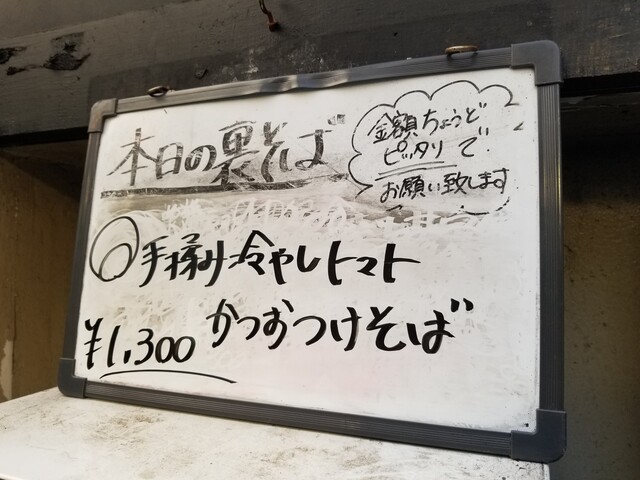 本日の裏そば
金額ちょうど
ピッタリで
お願い致します
◎手揉み冷やしトマト
¥1,300 かつおつけそば